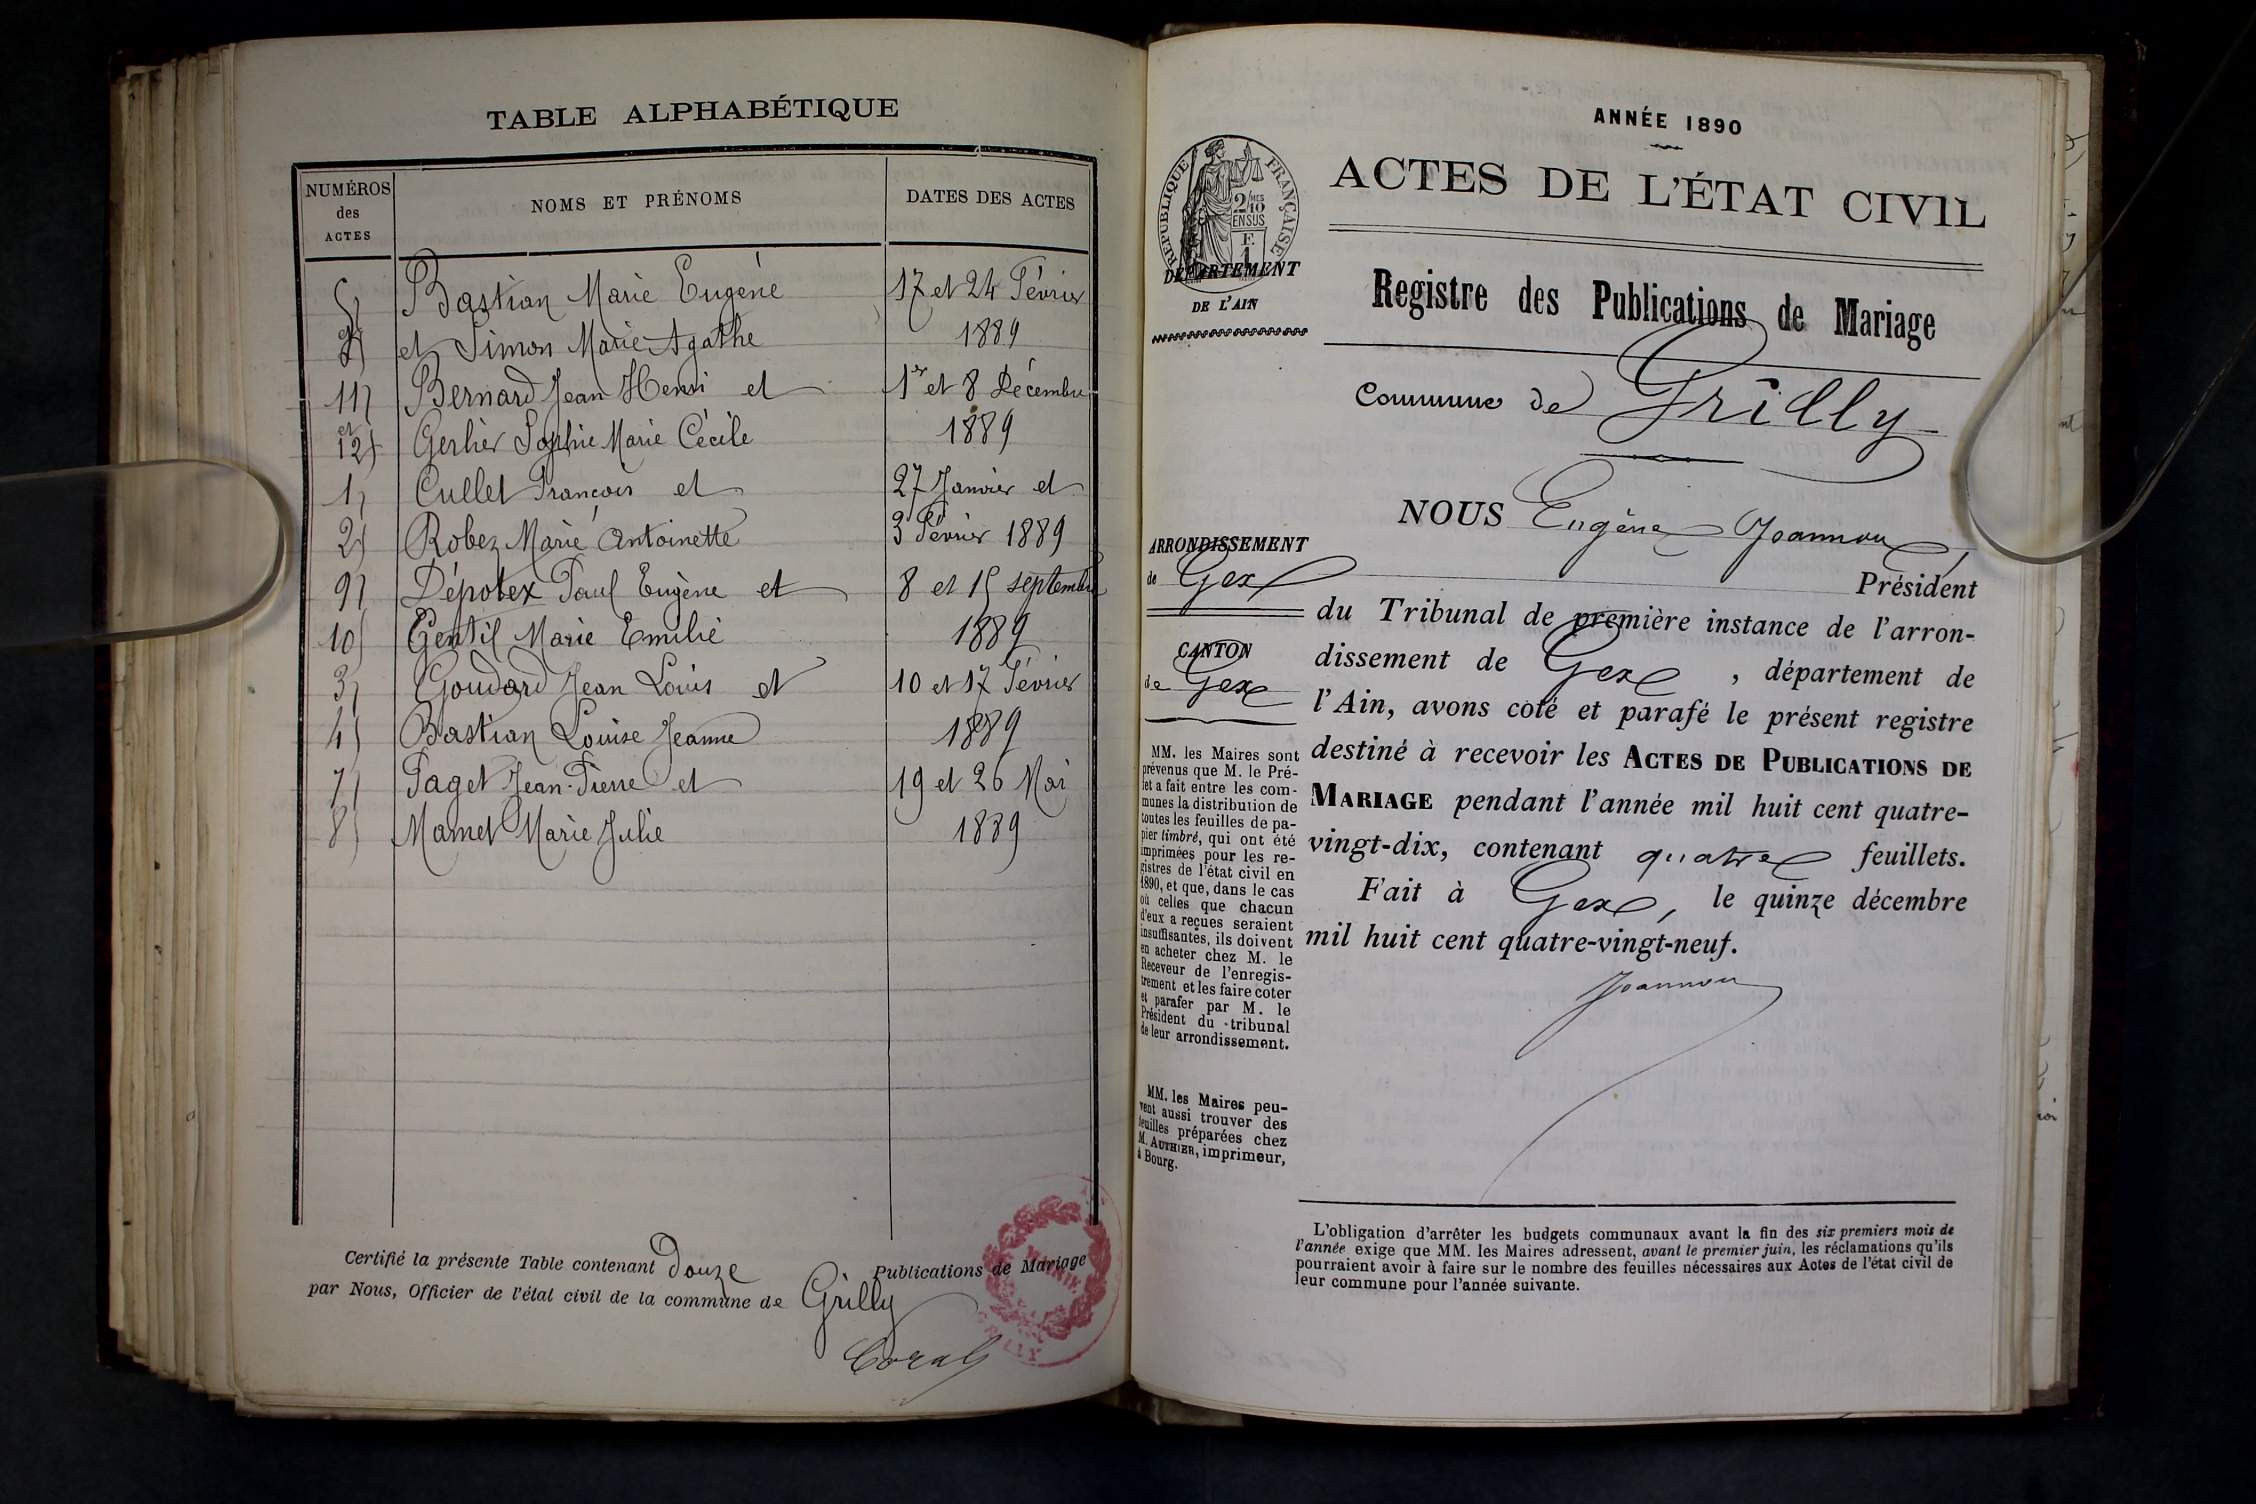 TABLE ALPHABÉTIQUE
NUMÉROS des ACTES
NOMS ET PRÉNOMS
DATES DES ACTES
5) Bastian Marie Eugène 17 et 24 Février
et Simon Marie Agathe 1889
11) Bernard Jean Henri et 1er et 8 Décembre
et 12) Gerlier Sophie Marie Cécile 1889
1) Cullet François et 27 Janvier et
2) Robez Marie Antoinette 3 Février 1889
9) Dépotex Paul Eugène et 8 et 15 septembre
10) Gentil Marie Emilie 1889
3) Goudard Jean Louis et 10 et 17 Février
4) Bastian Louise Jeanne 1889
7) Paget Jean-Pierre et 19 et 26 Mai
8) Mamet Marie Julie 1889
Certifié la présente Table contenant Douze Publications de Mariage
par Nous, Officier de l'état civil de la commune de Grilly
MAIRIE
GRILLY
ANNÉE 1890
RÉPUBLIQUE FRANÇAISE
2/10 MES
EN SUS
F.
1
ACTES DE L'ÉTAT CIVIL
DÉPARTEMENT
DE L'AIN
Registre des Publications de Mariage
Commune de Grilly
ARRONDISSEMENT
de Gex
CANTON
de Gex
MM. les Maires sont
prévenus que M. le Pré-
fet a fait entre les com-
munes la distribution de
toutes les feuilles de pa-
pier timbré, qui ont été
imprimées pour les re-
gistres de l'état civil en
1890, et que, dans le cas
où celles que chacun
d'eux a reçues seraient
insuffisantes, ils doivent
en acheter chez M. le
Receveur de l'enregis-
trement et les faire coter
et parafer par M. le
Président du tribunal
de leur arrondissement.
MM. les Maires peu-
vent aussi trouver des
feuilles préparées chez
M. AUTHIER, imprimeur,
à Bourg.
NOUS Eugène Joannon,
Président
du Tribunal de première instance de l'arron-
dissement de Gex, département de
l'Ain, avons coté et parafé le présent registre
destiné à recevoir les ACTES DE PUBLICATIONS DE
MARIAGE pendant l'année mil huit cent quatre-
vingt-dix, contenant quatre feuillets.
Fait à Gex, le quinze décembre
mil huit cent quatre-vingt-neuf.
Joannon
L'obligation d'arrêter les budgets communaux avant la fin des six premiers mois de
l'année exige que MM. les Maires adressent, avant le premier juin, les réclamations qu'ils
pourraient avoir à faire sur le nombre des feuilles nécessaires aux Actes de l'état civil de
leur commune pour l'année suivante.